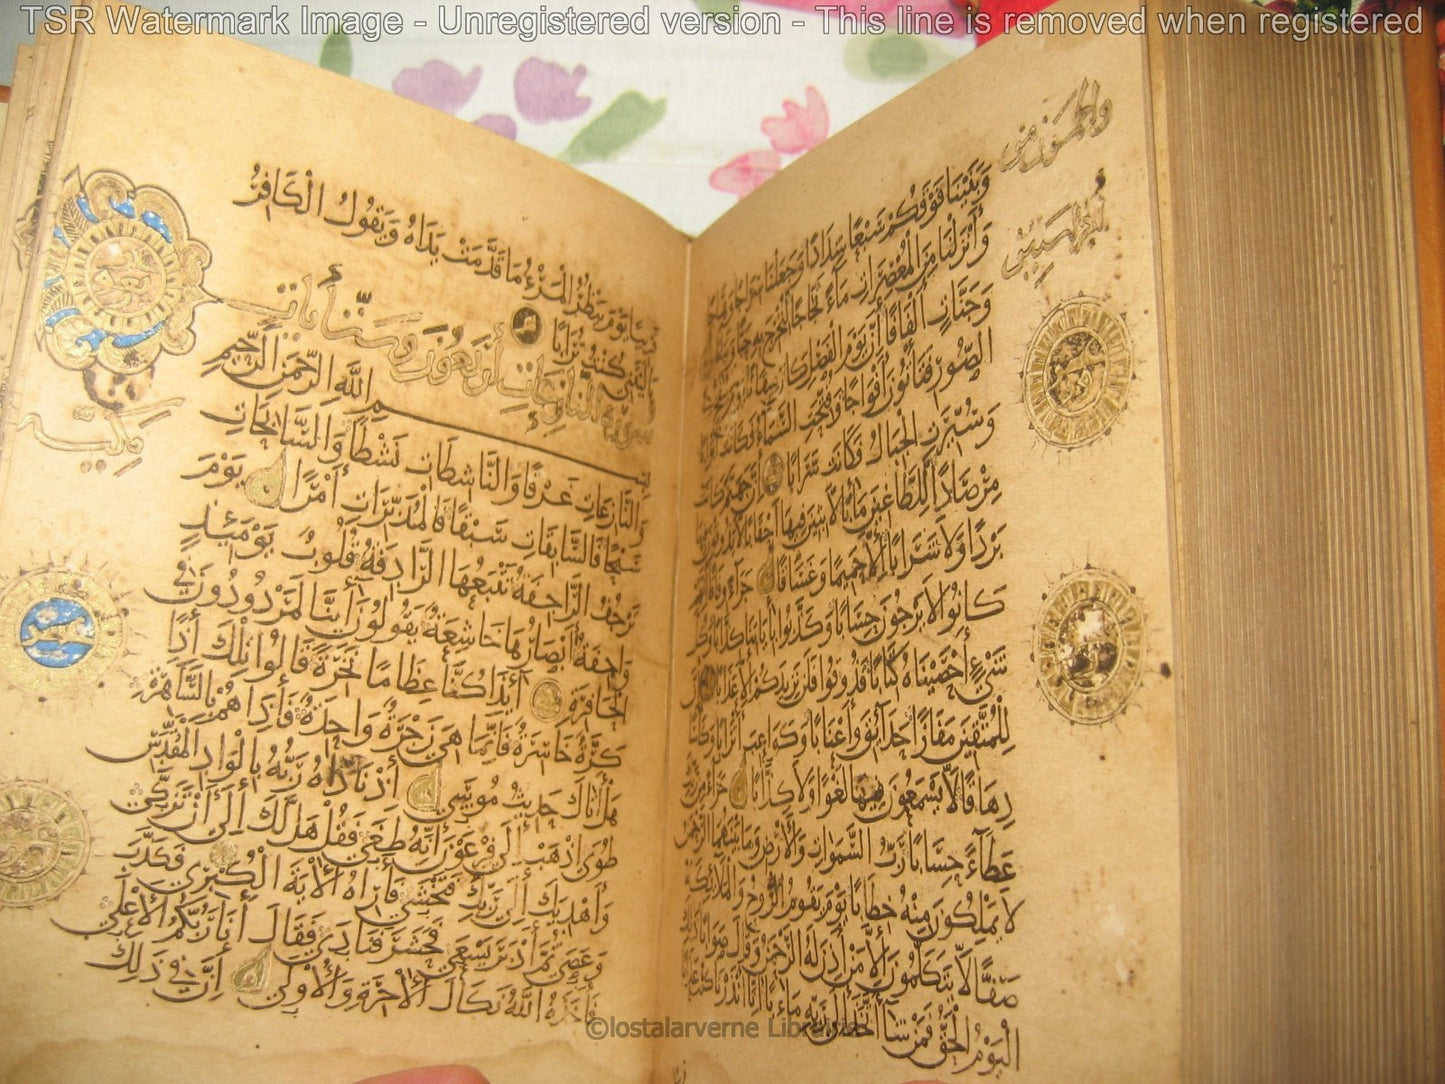 TSR Watermark Image - Unregistered version - This line is removed when registered
وَبَنَيْنَا فَوْقَكُمْ سَبْعًا شِدَادًا وَجَعَلْنَا سِرَاجًا
وَأَنْزَلْنَا مِنَ الْمُعْصِرَاتِ مَاءً ثَجَّاجًا لِنُخْرِجَ بِهِ حَبًّا
وَجَنَّاتٍ أَلْفَافًا إِنَّ يَوْمَ الْفَصْلِ كَانَ مِيقَاتًا
الصُّورِ فَتَأْتُونَ أَفْوَاجًا وَفُتِحَتِ السَّمَاءُ فَكَانَتْ
وَسُيِّرَتِ الْجِبَالُ فَكَانَتْ سَرَابًا إِنَّ جَهَنَّمَ كَانَتْ
مِرْصَادًا لِلطَّاغِينَ مَآبًا لَابِثِينَ فِيهَا أَحْقَابًا لَا يَذُوقُونَ
بَرْدًا وَلَا شَرَابًا إِلَّا حَمِيمًا وَغَسَّاقًا جَزَاءً وِفَاقًا
كَانُوا لَا يَرْجُونَ حِسَابًا وَكَذَّبُوا بِآيَاتِنَا كِذَّابًا
شَيْءٍ أَحْصَيْنَاهُ كِتَابًا فَذُوقُوا فَلَنْ نَزِيدَكُمْ إِلَّا عَذَابًا
لِلْمُتَّقِينَ مَفَازًا حَدَائِقَ وَأَعْنَابًا وَكَوَاعِبَ أَتْرَابًا وَكَأْسًا
دِهَاقًا لَا يَسْمَعُونَ فِيهَا لَغْوًا وَلَا كِذَّابًا جَزَاءً مِنْ
عَطَاءً حِسَابًا رَبِّ السَّمَوَاتِ وَالْأَرْضِ وَمَا بَيْنَهُمَا الرَّحْمَنِ
لَا يَمْلِكُونَ مِنْهُ خِطَابًا يَوْمَ يَقُومُ الرُّوحُ وَالْمَلَائِكَةُ
صَفًّا لَا يَتَكَلَّمُونَ إِلَّا مَنْ أَذِنَ لَهُ الرَّحْمَنُ وَقَالَ صَوَابًا
الْيَوْمُ الْحَقُّ فَمَنْ شَاءَ اتَّخَذَ إِلَى رَبِّهِ مَآبًا إِنَّا أَنْذَرْنَاكُمْ
يَوْمَ يَنْظُرُ الْمَرْءُ مَا قَدَّمَتْ يَدَاهُ وَيَقُولُ الْكَافِرُ
كُنْتُ تُرَابًا
سورة النَّازِعَاتِ أَرْبَعُونَ وَسِتُّ آيَاتٍ
مكية
بِسْمِ اللَّهِ الرَّحْمَنِ الرَّحِيمِ
وَالنَّازِعَاتِ غَرْقًا وَالنَّاشِطَاتِ نَشْطًا وَالسَّابِحَاتِ
سَبْحًا فَالسَّابِقَاتِ سَبْقًا فَالْمُدَبِّرَاتِ أَمْرًا يَوْمَ
تَرْجُفُ الرَّاجِفَةُ تَتْبَعُهَا الرَّادِفَةُ قُلُوبٌ يَوْمَئِذٍ
وَاجِفَةٌ أَبْصَارُهَا خَاشِعَةٌ يَقُولُونَ أَئِنَّا لَمَرْدُودُونَ فِي
الْحَافِرَةِ أَئِذَا كُنَّا عِظَامًا نَخِرَةً قَالُوا تِلْكَ إِذًا
كَرَّةٌ خَاسِرَةٌ فَإِنَّمَا هِيَ زَجْرَةٌ وَاحِدَةٌ فَإِذَا هُمْ بِالسَّاهِرَةِ
هَلْ أَتَاكَ حَدِيثُ مُوسَى إِذْ نَادَاهُ رَبُّهُ بِالْوَادِ الْمُقَدَّسِ
طُوًى اذْهَبْ إِلَى فِرْعَوْنَ إِنَّهُ طَغَى فَقُلْ هَلْ لَكَ إِلَى أَنْ تَزَكَّى
وَأَهْدِيَكَ إِلَى رَبِّكَ فَتَخْشَى فَأَرَاهُ الْآيَةَ الْكُبْرَى فَكَذَّبَ
وَعَصَى ثُمَّ أَدْبَرَ يَسْعَى فَحَشَرَ فَنَادَى فَقَالَ أَنَا رَبُّكُمُ الْأَعْلَى
فَأَخَذَهُ اللَّهُ نَكَالَ الْآخِرَةِ وَالْأُولَى إِنَّ فِي ذَلِكَ